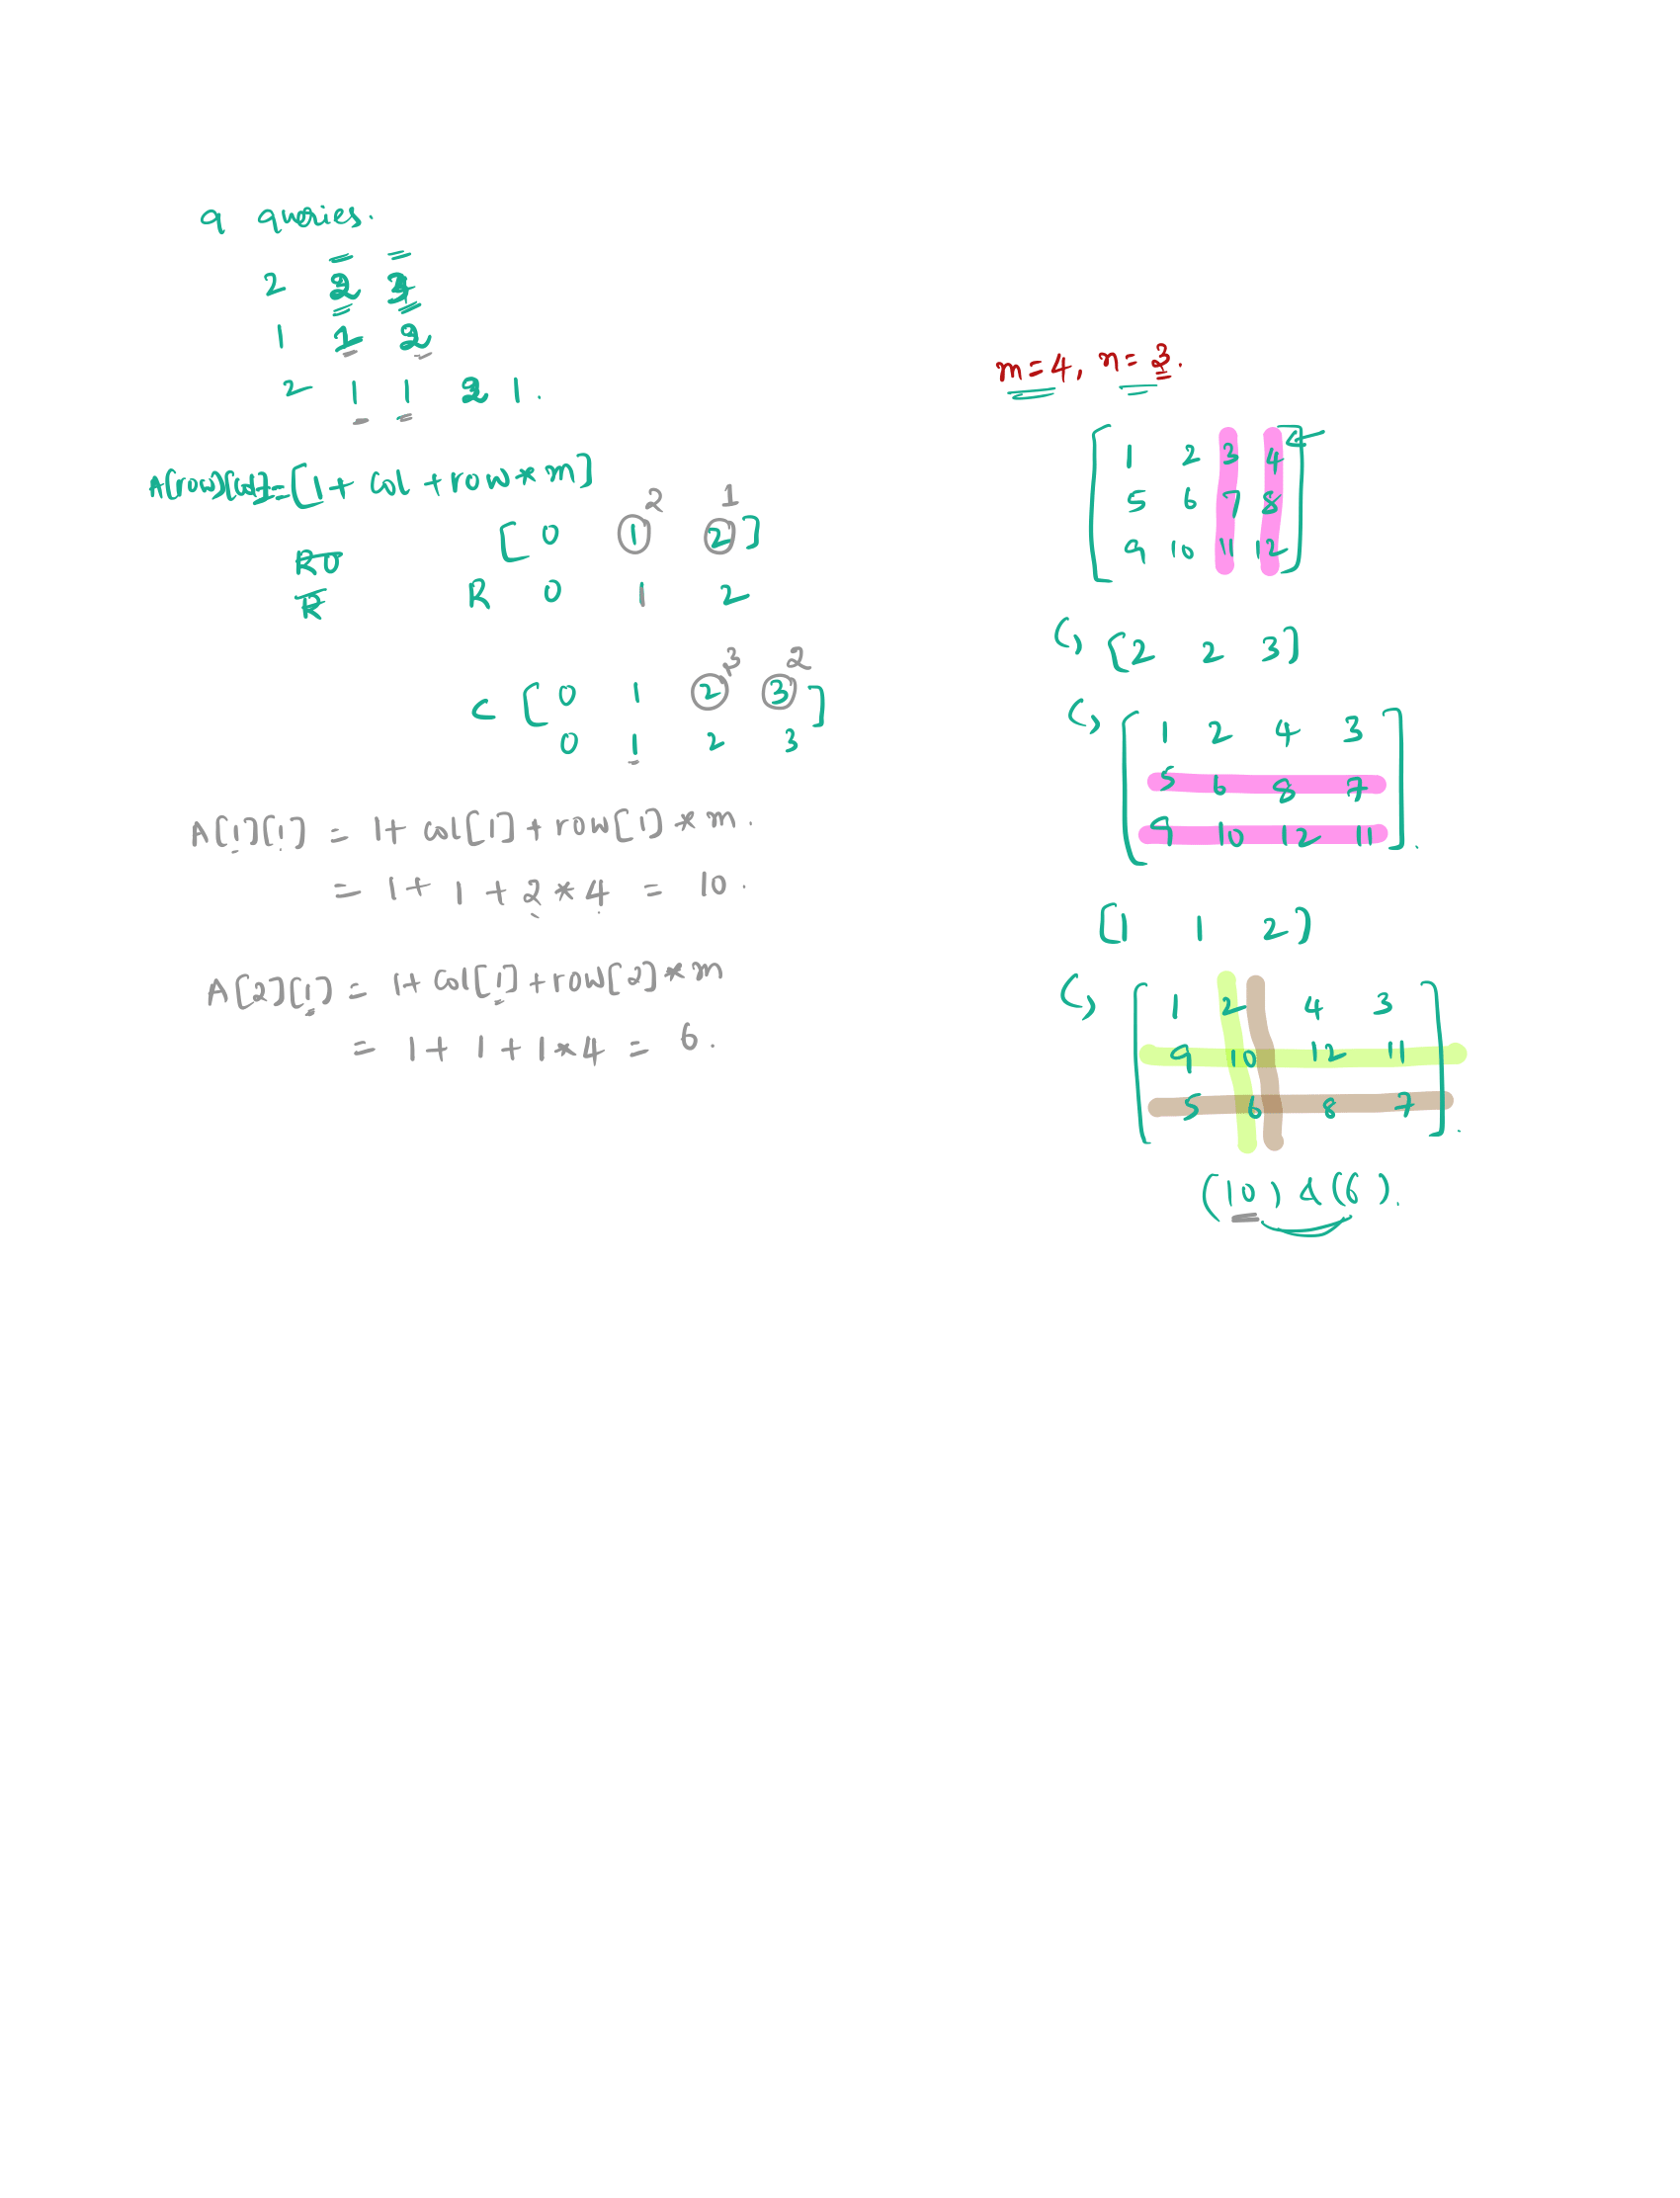 q queries.
2 2
1 1 2
2 1 1 2 1.
A[row][col]=[1+ col +row*m]
2 1
[0 1 2]
R 0 1 2
3 2
C [0 1 2 3]
0 1 2 3
A[1][1] = 1+ col[1]+row[1]*m.
= 1+ 1 + 2*4 = 10.
A[2][1] = 1+ col[1]+row[2]*m
= 1+ 1+1*4 = 6.
m=4, n=3.
1 2 3 4
5 6 7 8
9 10 11 12
[2 2 3]
1 2 4 3
5 6 8 7
9 10 12 11
[1 1 2]
1 2 4 3
9 10 12 11
5 6 8 7
(10) & (6).